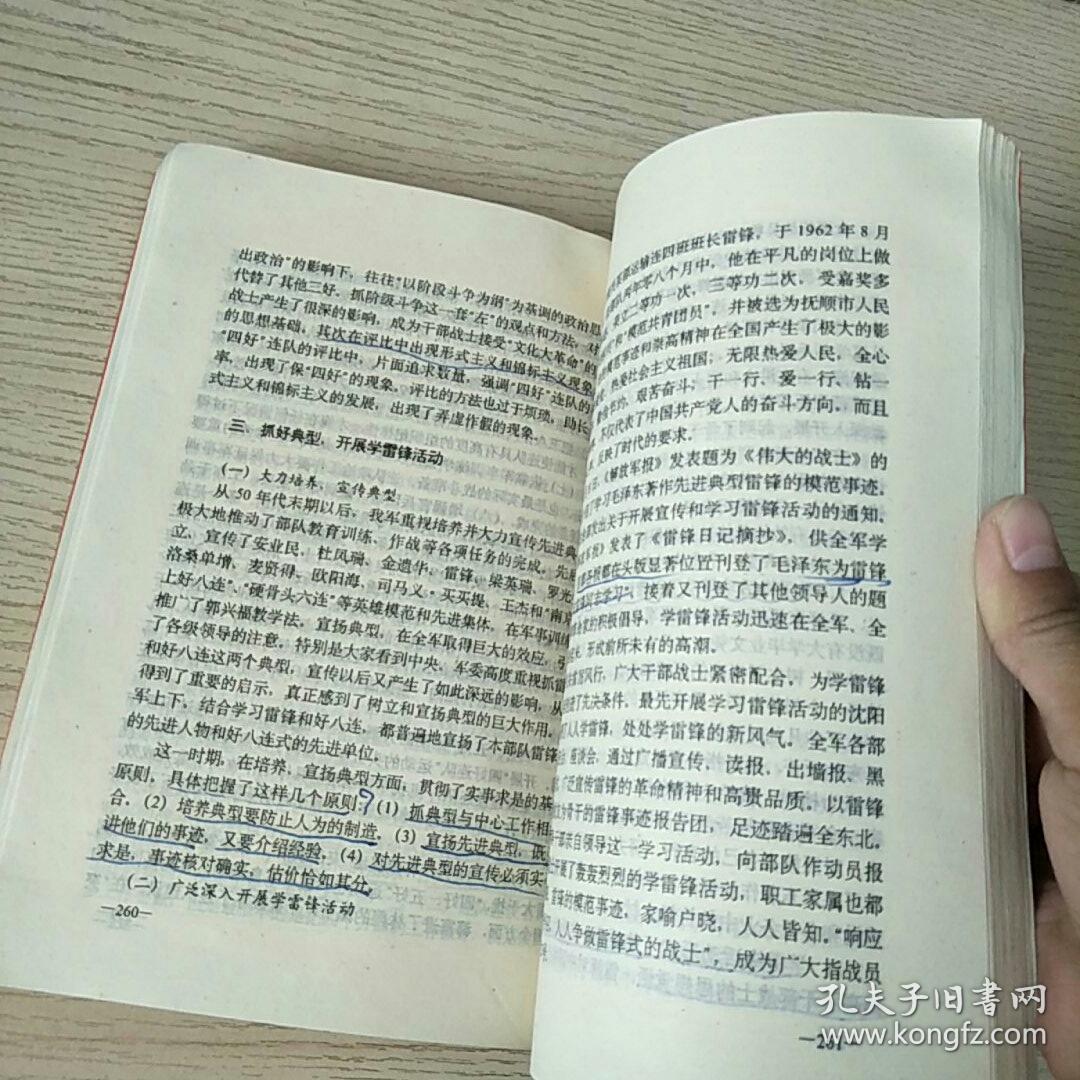 出政治”的影响下，往往“以阶段斗争为纲”为基调的政治思
代替了其他三好，抓阶级斗争这一套“左”的观点和方法，对
战士产生了很深的影响，成为干部战士接受“文化大革命”的
的思想基础，其次在评比中出现形式主义和锦标主义现象，
“四好”连队的评比中，片面追求数量，强调“四好”连队的
率，出现了保“四好”的现象，评比的方法也过于烦琐，助长
式主义和锦标主义的发展，出现了弄虚作假的现象。
三、抓好典型，开展学雷锋活动
（一）大力培养、宣传典型
从 50 年代末期以后，我军重视培养并大力宣传先进典
极大地推动了部队教育训练、作战等各项任务的完成。先
立、宣传了安业民、杜凤瑞、金遗华、雷锋、梁英瑞、罗光
洛桑单增、麦贤得、欧阳海、司马义·买买提、王杰和“南京
上好八连”、“硬骨头六连”等英雄模范和先进集体，在军事训练
推广了郭兴福教学法，宣扬典型，在全军取得巨大的效应，引
了各级领导的注意，特别是大家看到中央、军委高度重视抓雷
和好八连这两个典型，宣传以后又产生了如此深远的影响，从
得到了重要的启示，真正感到了树立和宣扬典型的巨大作用。
军上下，结合学习雷锋和好八连，都普遍地宣扬了本部队雷锋
的先进人物和好八连式的先进单位。
这一时期，在培养、宣扬典型方面，贯彻了实事求是的基
原则，具体把握了这样几个原则：（1）抓典型与中心工作相
合，（2）培养典型要防止人为的制造，（3）宣扬先进典型，既
进他们的事迹，又要介绍经验，（4）对先进典型的宣传必须实
求是，事迹核对确实，估价恰如其分。
（二）广泛深入开展学雷锋活动
—260—
某部运输连四班班长雷锋，于 1962 年 8 月
部队两年零八个月中，他在平凡的岗位上做
立二等功一次，三等功二次，受嘉奖多
和“模范共青团员”，并被选为抚顺市人民
模范事迹和崇高精神在全国产生了极大的影
热爱社会主义祖国；无限热爱人民，全心
艰苦奋斗；干一行、爱一行、钻一
不仅代表了中国共产党人的奋斗方向，而且
反映了时代的要求。
日，《解放军报》发表题为《伟大的战士》的
了学习毛泽东著作先进典型雷锋的模范事迹。
发出关于开展宣传和学习雷锋活动的通知。
报》发表了《雷锋日记摘抄》，供全军学
各报都在头版显著位置刊登了毛泽东为雷锋
同志学习”，接着又刊登了其他领导人的题
党的积极倡导，学雷锋活动迅速在全军、全
形成前所未有的高潮。
雷厉风行，广大干部战士紧密配合，为学雷锋
了先决条件。最先开展学习雷锋活动的沈阳
人人学雷锋，处处学雷锋的新风气。全军各部
座谈会，通过广播宣传、读报、出墙报、黑
广泛宣传雷锋的革命精神和高贵品质。以雷锋
为骨干的雷锋事迹报告团，足迹踏遍全东北。
干部亲自领导这一学习活动，向部队作动员报
开展了轰轰烈烈的学雷锋活动，职工家属也都
雷锋的模范事迹，家喻户晓，人人皆知。“响应
人人争做雷锋式的战士”，成为广大指战员
—261—
孔夫子旧書网
www.kongfz.com